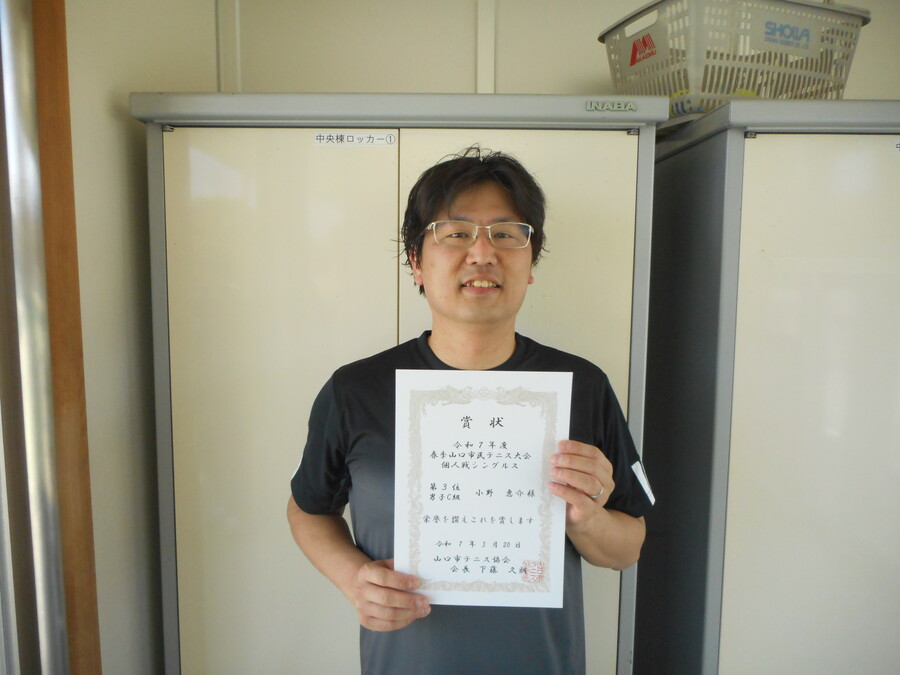 SHOWA
INABA
中央棟ロッカー①
賞状
令和7年度
春季山口市民テニス大会
個人戦シングルス
第3位
男子C組 小野 恵介様
栄誉を讃えこれを賞します
令和7年3月20日
山口市テニス協会
会長 下藤